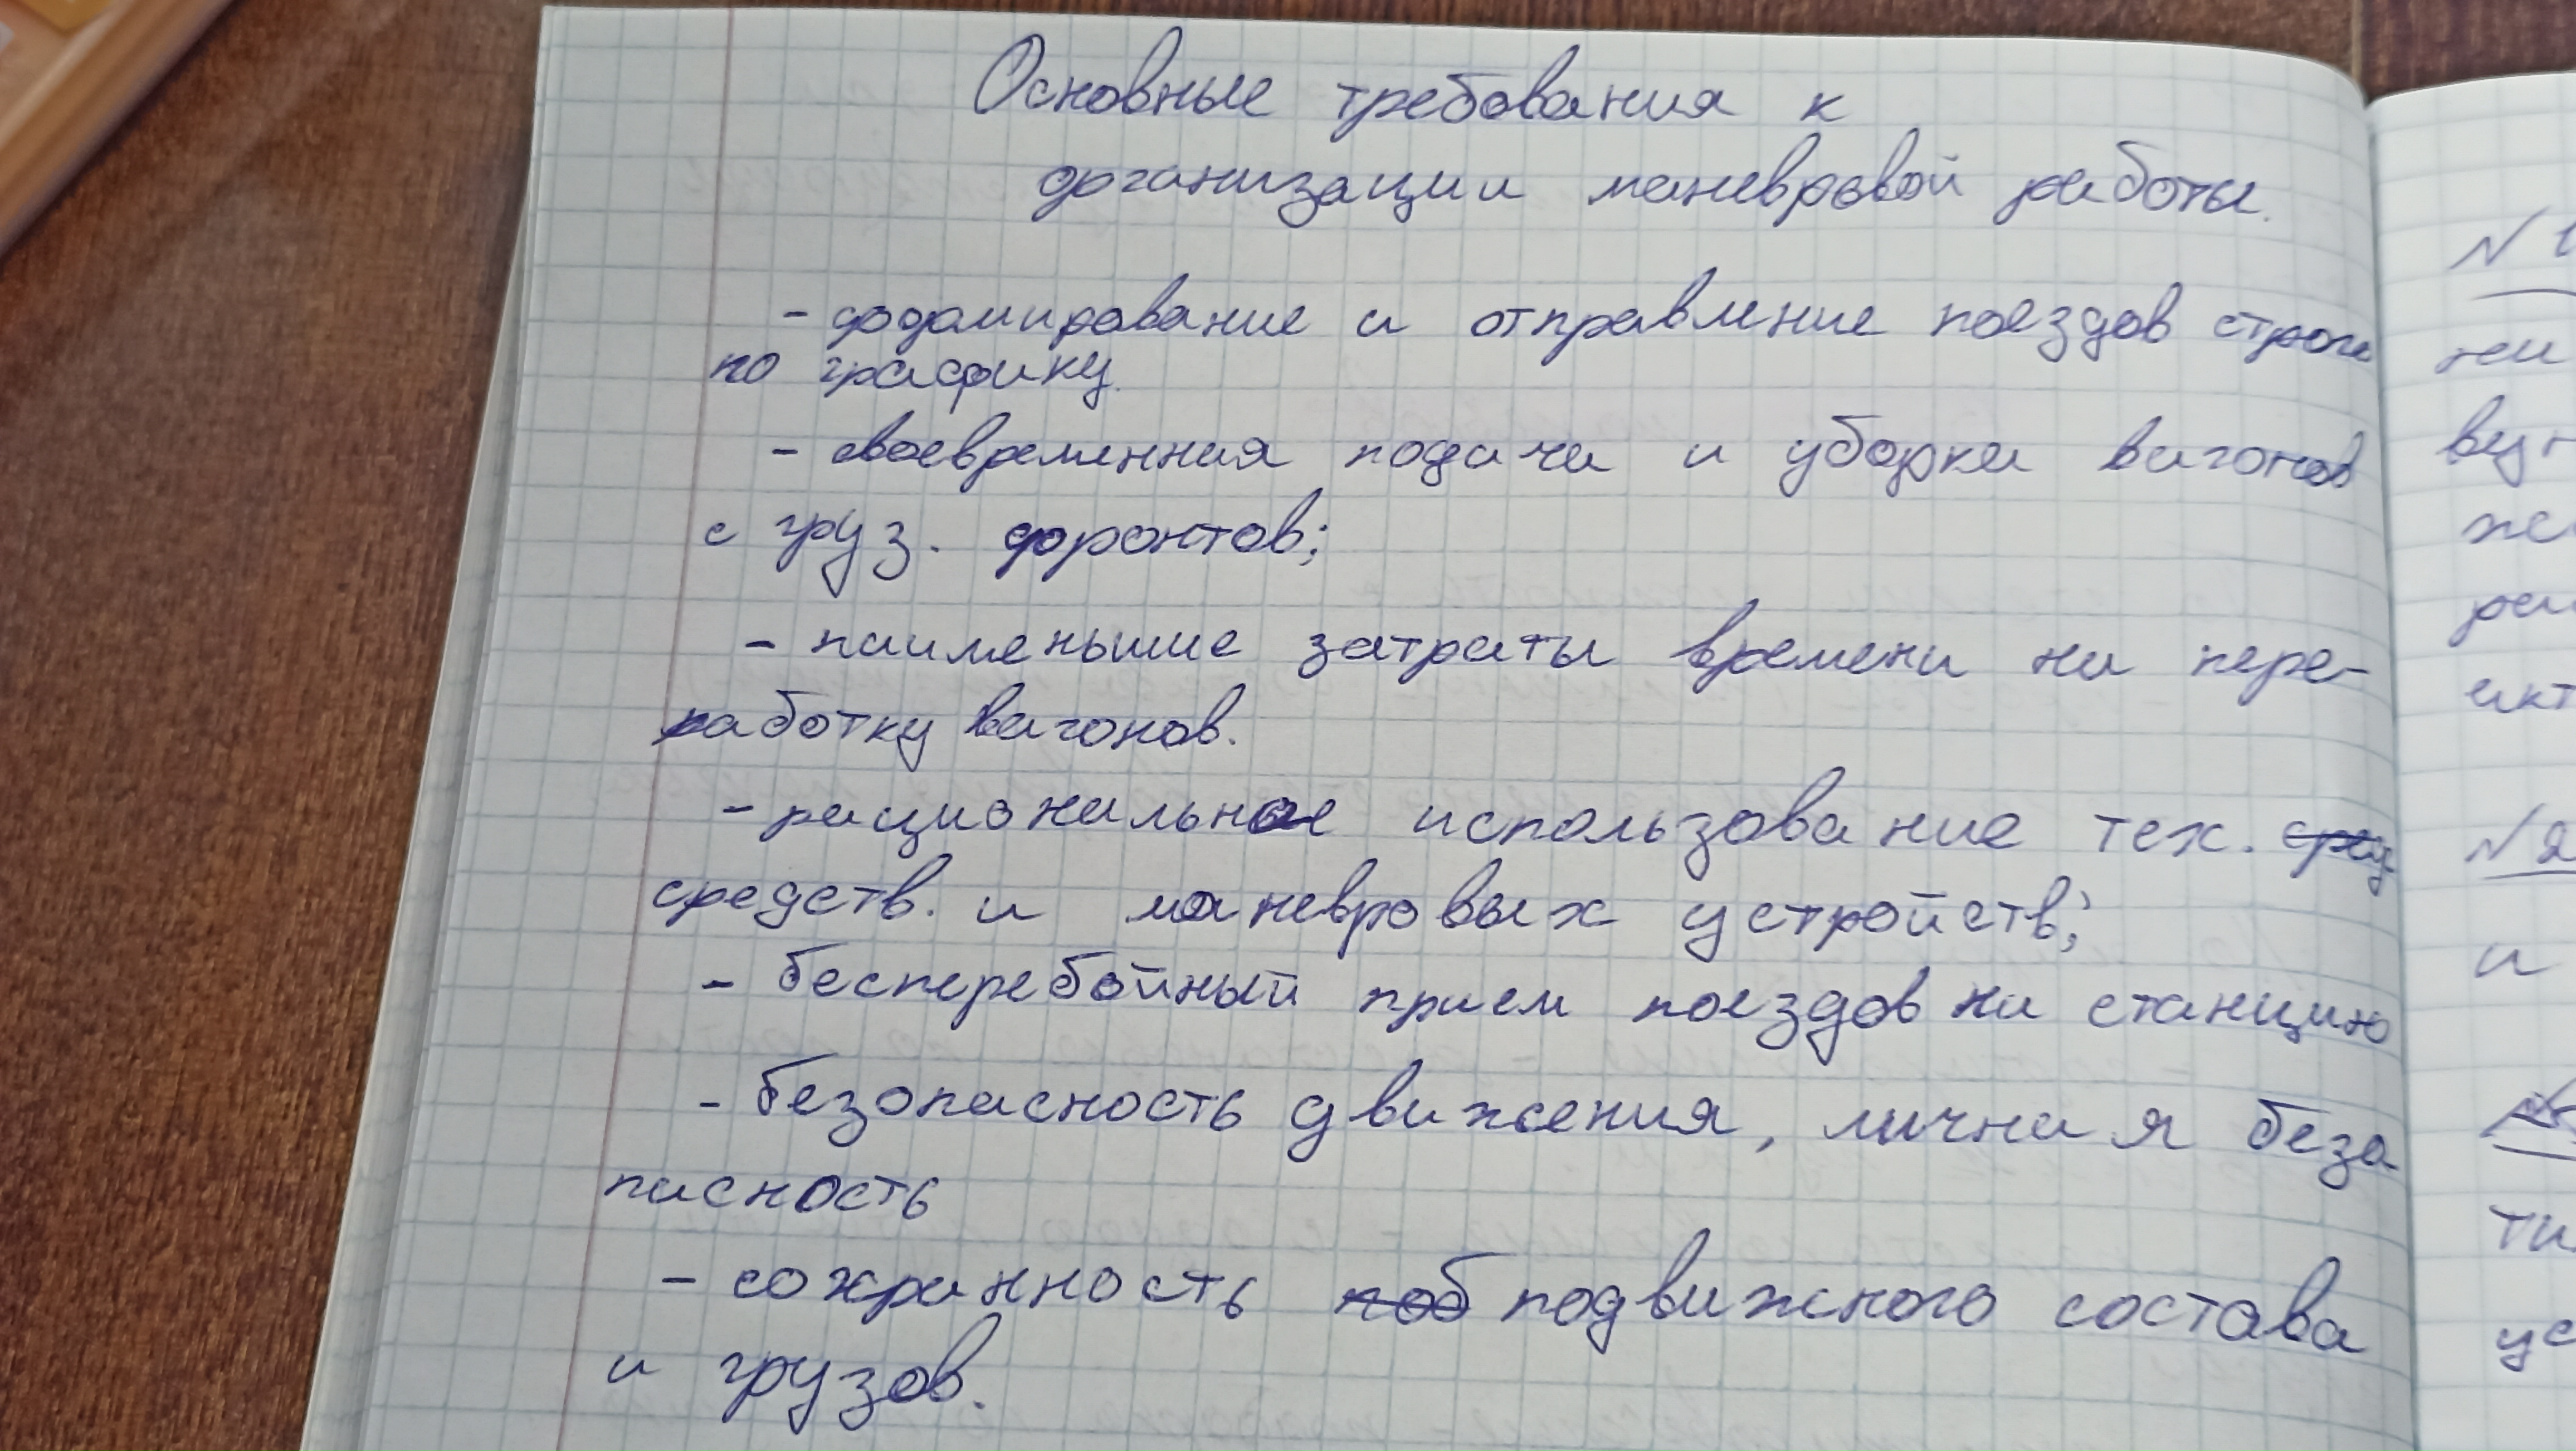 Основные требования к
организации маневровой работы.
- формирование и отправление поездов строго
по графику.
- своевременная подача и уборка вагонов
с груз. фронтов;
- наименьшие затраты времени на пере-
работку вагонов.
- рациональное использование тех.
средств. и маневровых устройств;
- бесперебойный прием поездов на станцию
- безопасность движения, личная безо
пасность
- сохранность подвижного состава
и грузов.